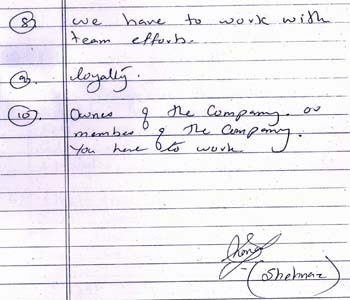 8) we have to work with
team efforts.
9) loyalty.
10) Owner of the Company. or
member of the Company.
You have to work
(Shehnaz)